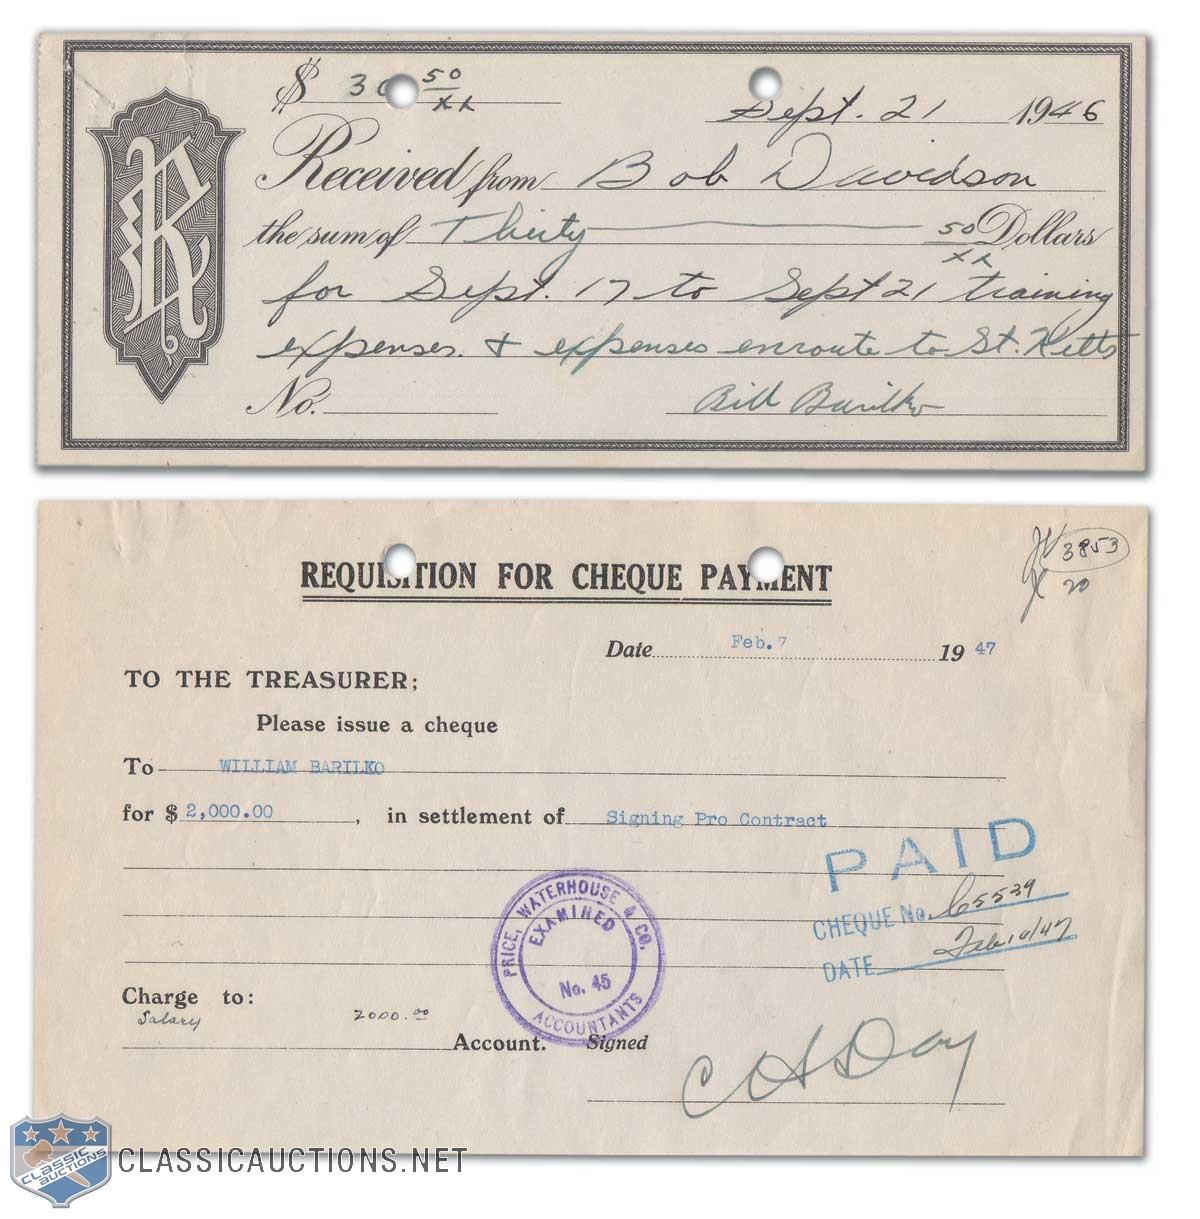 $ 30 50/xx
Sept. 21 1946
R
Received from Bob Davidson
the sum of Thirty 50/xx Dollars
for Sept. 17 to Sept 21 training
expenses. & expenses enroute to St. Kitts
No. Bill Barilko
JV 3853
20
REQUISITION FOR CHEQUE PAYMENT
Date Feb. 7 19 47
TO THE TREASURER;
Please issue a cheque
To WILLIAM BARILKO
for $ 2,000.00, in settlement of Signing Pro Contract
PAID
CHEQUE No. C5539
DATE Feb 10/47
PRICE, WATERHOUSE & CO.
EXAMINED
No. 45
ACCOUNTANTS
Charge to:
Salary 2000.00
Account. Signed C H Day
CLASSIC AUCTIONS
CLASSICAUCTIONS.NET